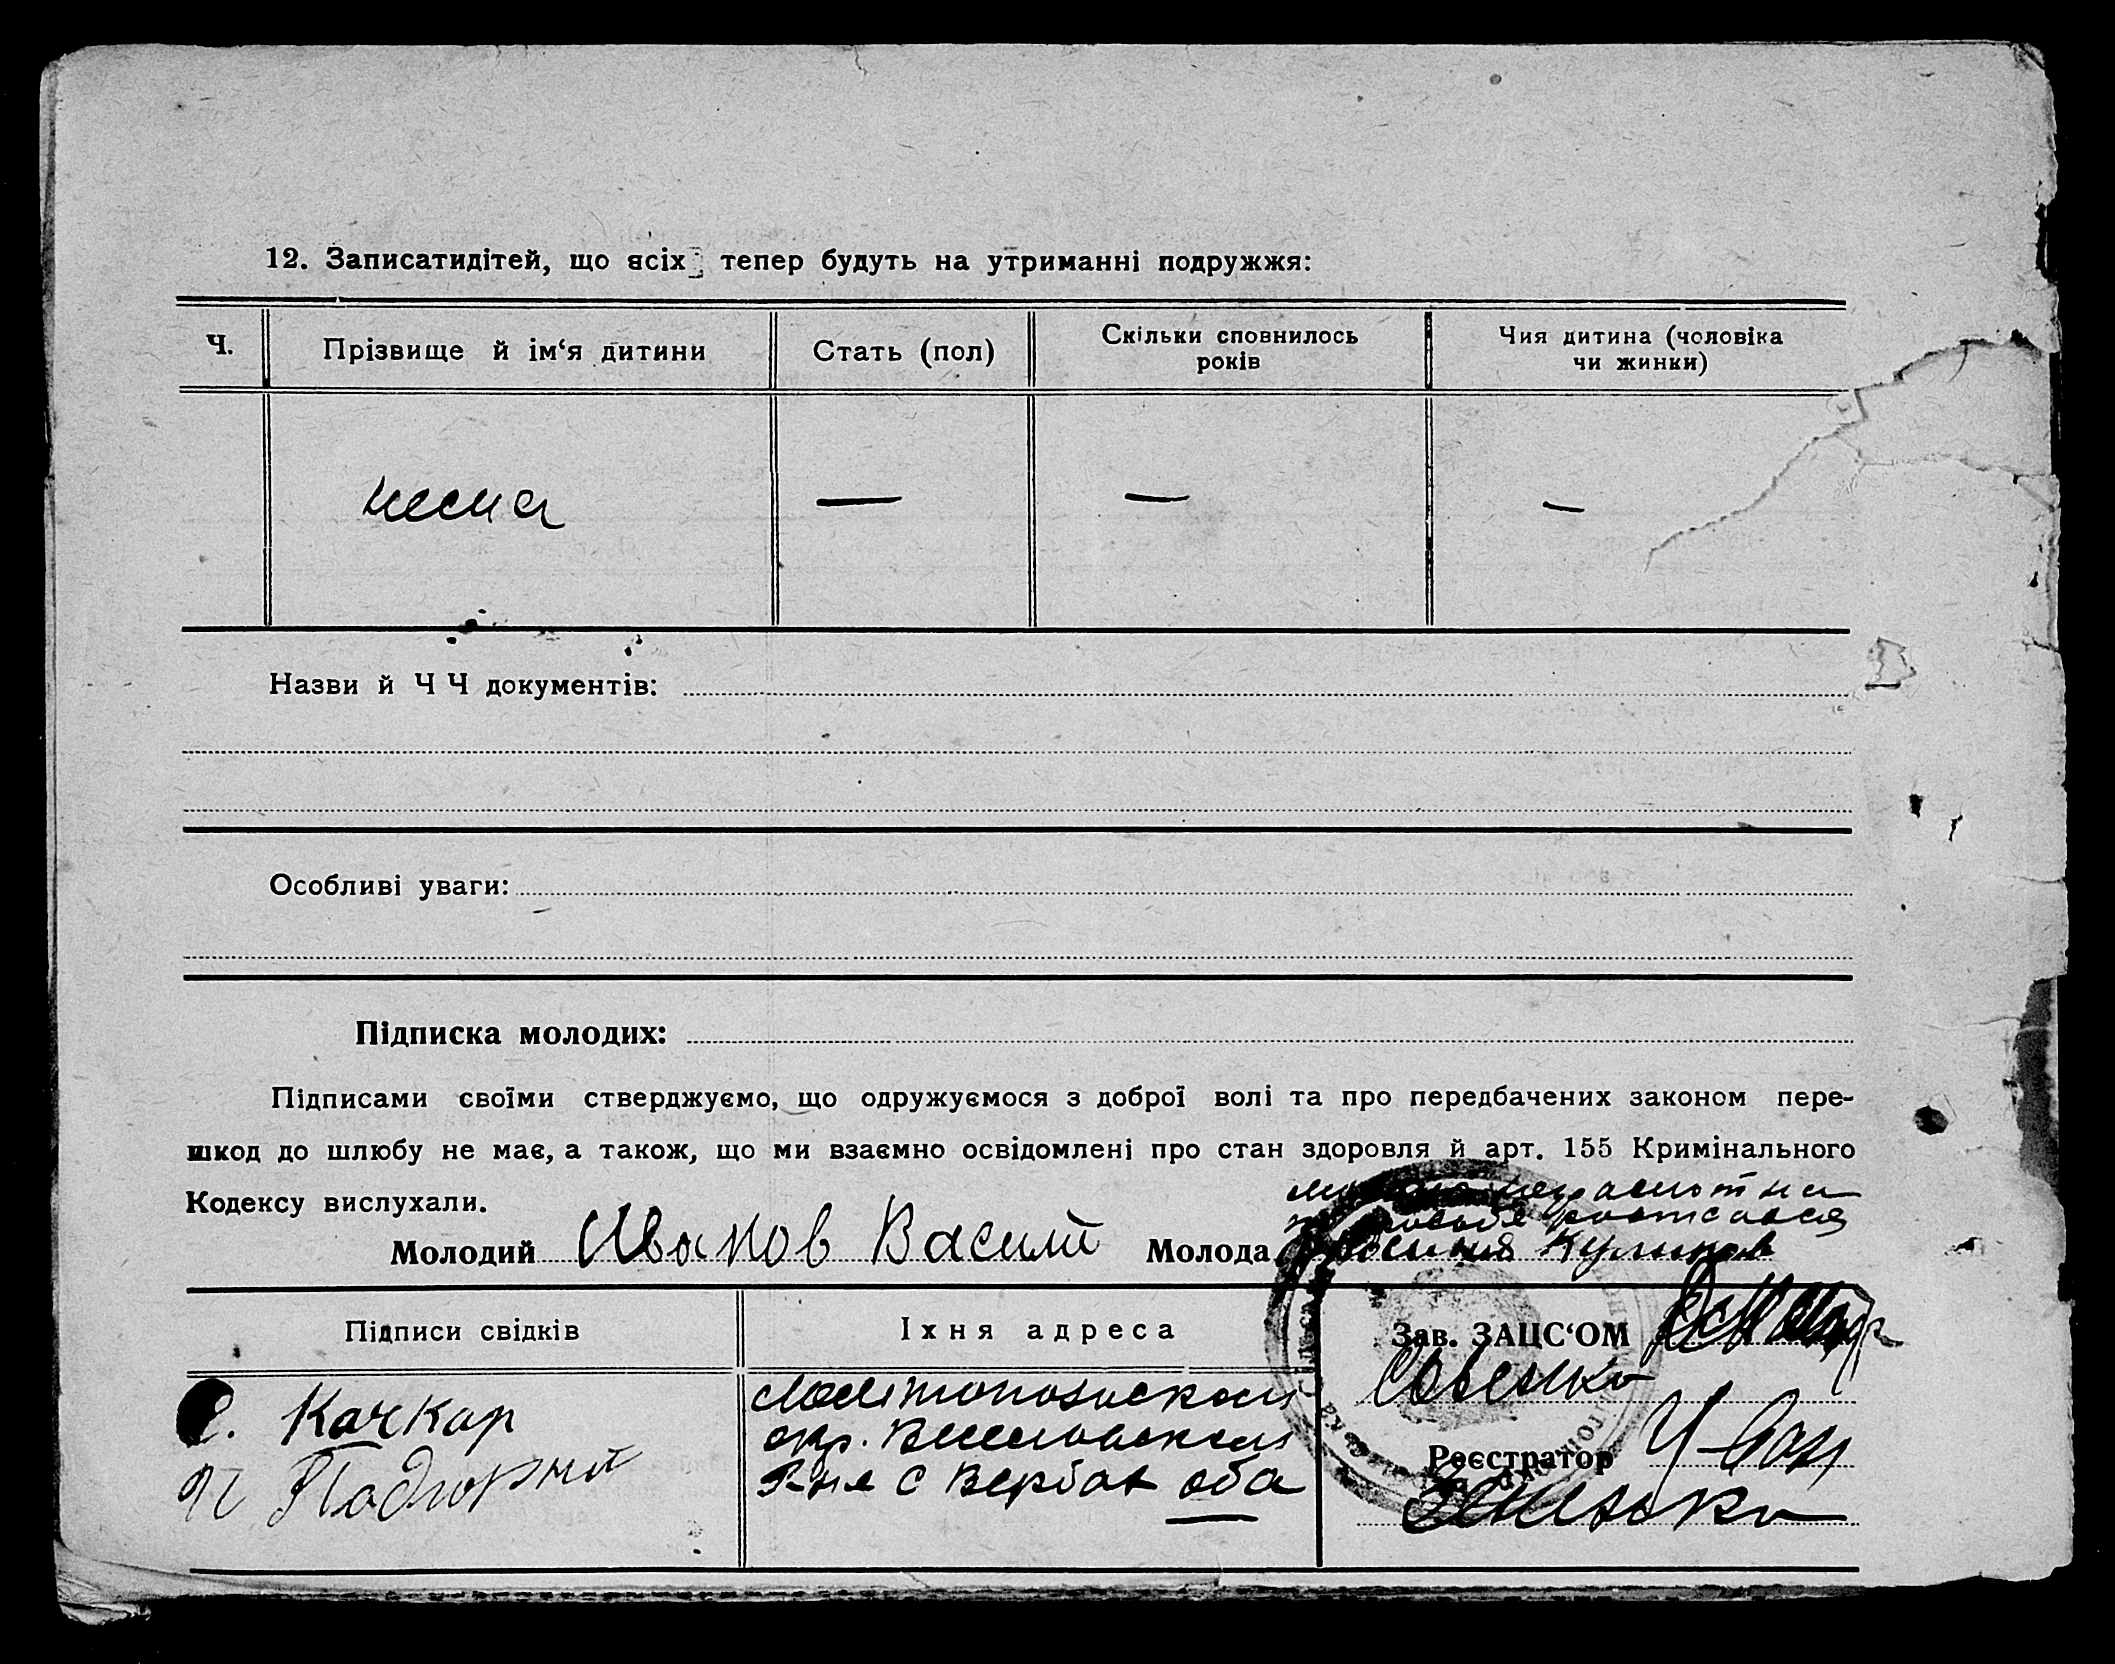 12. Записатидітей, що всіх тепер будуть на утриманні подружжя:
Ч.
Прізвище й ім‘я дитини
Стать (пол)
Скільки сповнилось
років
Чия дитина (чоловіка
чи жинки)
нема — — —
Назви й Ч Ч документів:
Особливі уваги:
Підписка молодих:
Підписами своїми стверджуємо, що одружуємося з доброї волі та про передбачених законом пере-
шкод до шлюбу не має, а також, що ми взаємно освідомлені про стан здоровля й арт. 155 Кримінального
Кодексу вислухали.
Молодий Иванов Василий Молода
Підписи свідків
Їхня адреса
Зав. ЗАЦС‘ОМ
С. Качкар
И Подгорный
Мелітопольськой
окр.
с Вербов оба
Реєстратор